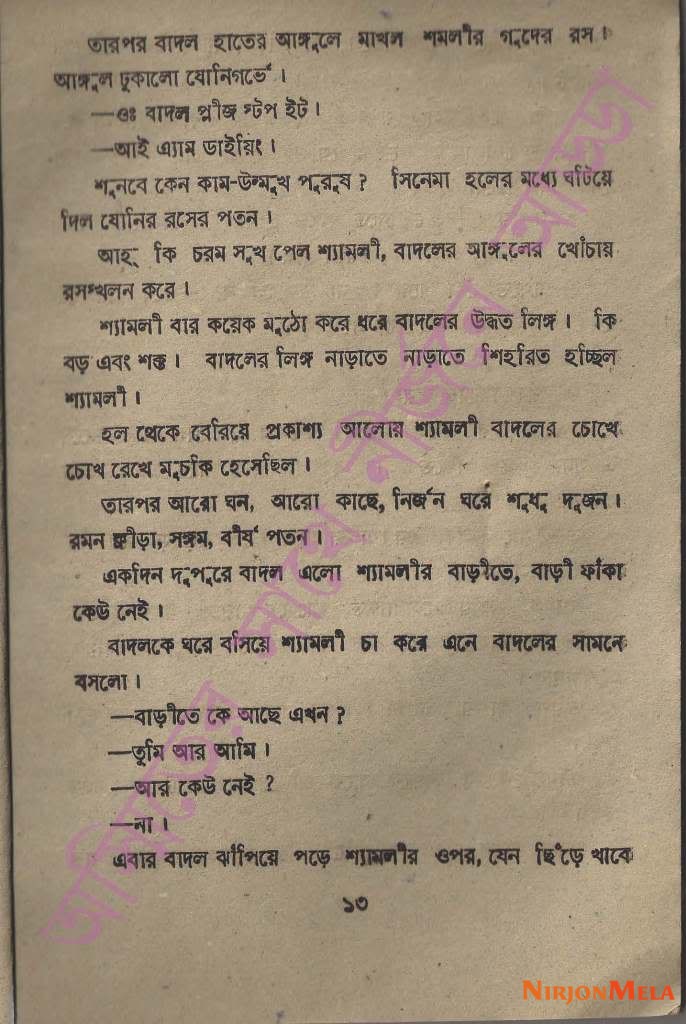 তারপর বাদল হাতের আঙ্গুলে মাখল শমলীর গুদের রস।
আঙ্গুল ঢুকালো যোনিগর্ভে।
—ওঃ বাদল প্লীজ স্টপ ইট।
—আই এ্যাম ডাইয়িং।
শুনবে কেন কাম-উন্মুখ পুরুষ? সিনেমা হলের মধ্যে ঘটিয়ে
দিল যোনির রসের পতন।
আহ্ কি চরম সুখ পেল শ্যামলী, বাদলের আঙ্গুলের খোঁচায়
রসস্খলন করে।
শ্যামলী বার কয়েক মুঠো করে ধরে বাদলের উদ্ধত লিঙ্গ। কি
বড় এবং শক্ত। বাদলের লিঙ্গ নাড়াতে নাড়াতে শিহরিত হচ্ছিল
শ্যামলী।
হল থেকে বেরিয়ে প্রকাশ্য আলোয় শ্যামলী বাদলের চোখে
চোখ রেখে মুচকি হেসেছিল।
তারপর আরো ঘন, আরো কাছে, নির্জন ঘরে শুধু দুজন।
রমন ক্রীড়া, সঙ্গম, বীর্য পতন।
একদিন দুপুরে বাদল এলো শ্যামলীর বাড়ীতে, বাড়ী ফাঁকা
কেউ নেই।
বাদলকে ঘরে বসিয়ে শ্যামলী চা করে এনে বাদলের সামনে
বসলো।
—বাড়ীতে কে আছে এখন?
—তুমি আর আমি।
—আর কেউ নেই?
—না।
এবার বাদল ঝাঁপিয়ে পড়ে শ্যামলীর ওপর, যেন ছিঁড়ে খাবে
১৩
NIRJONMELA